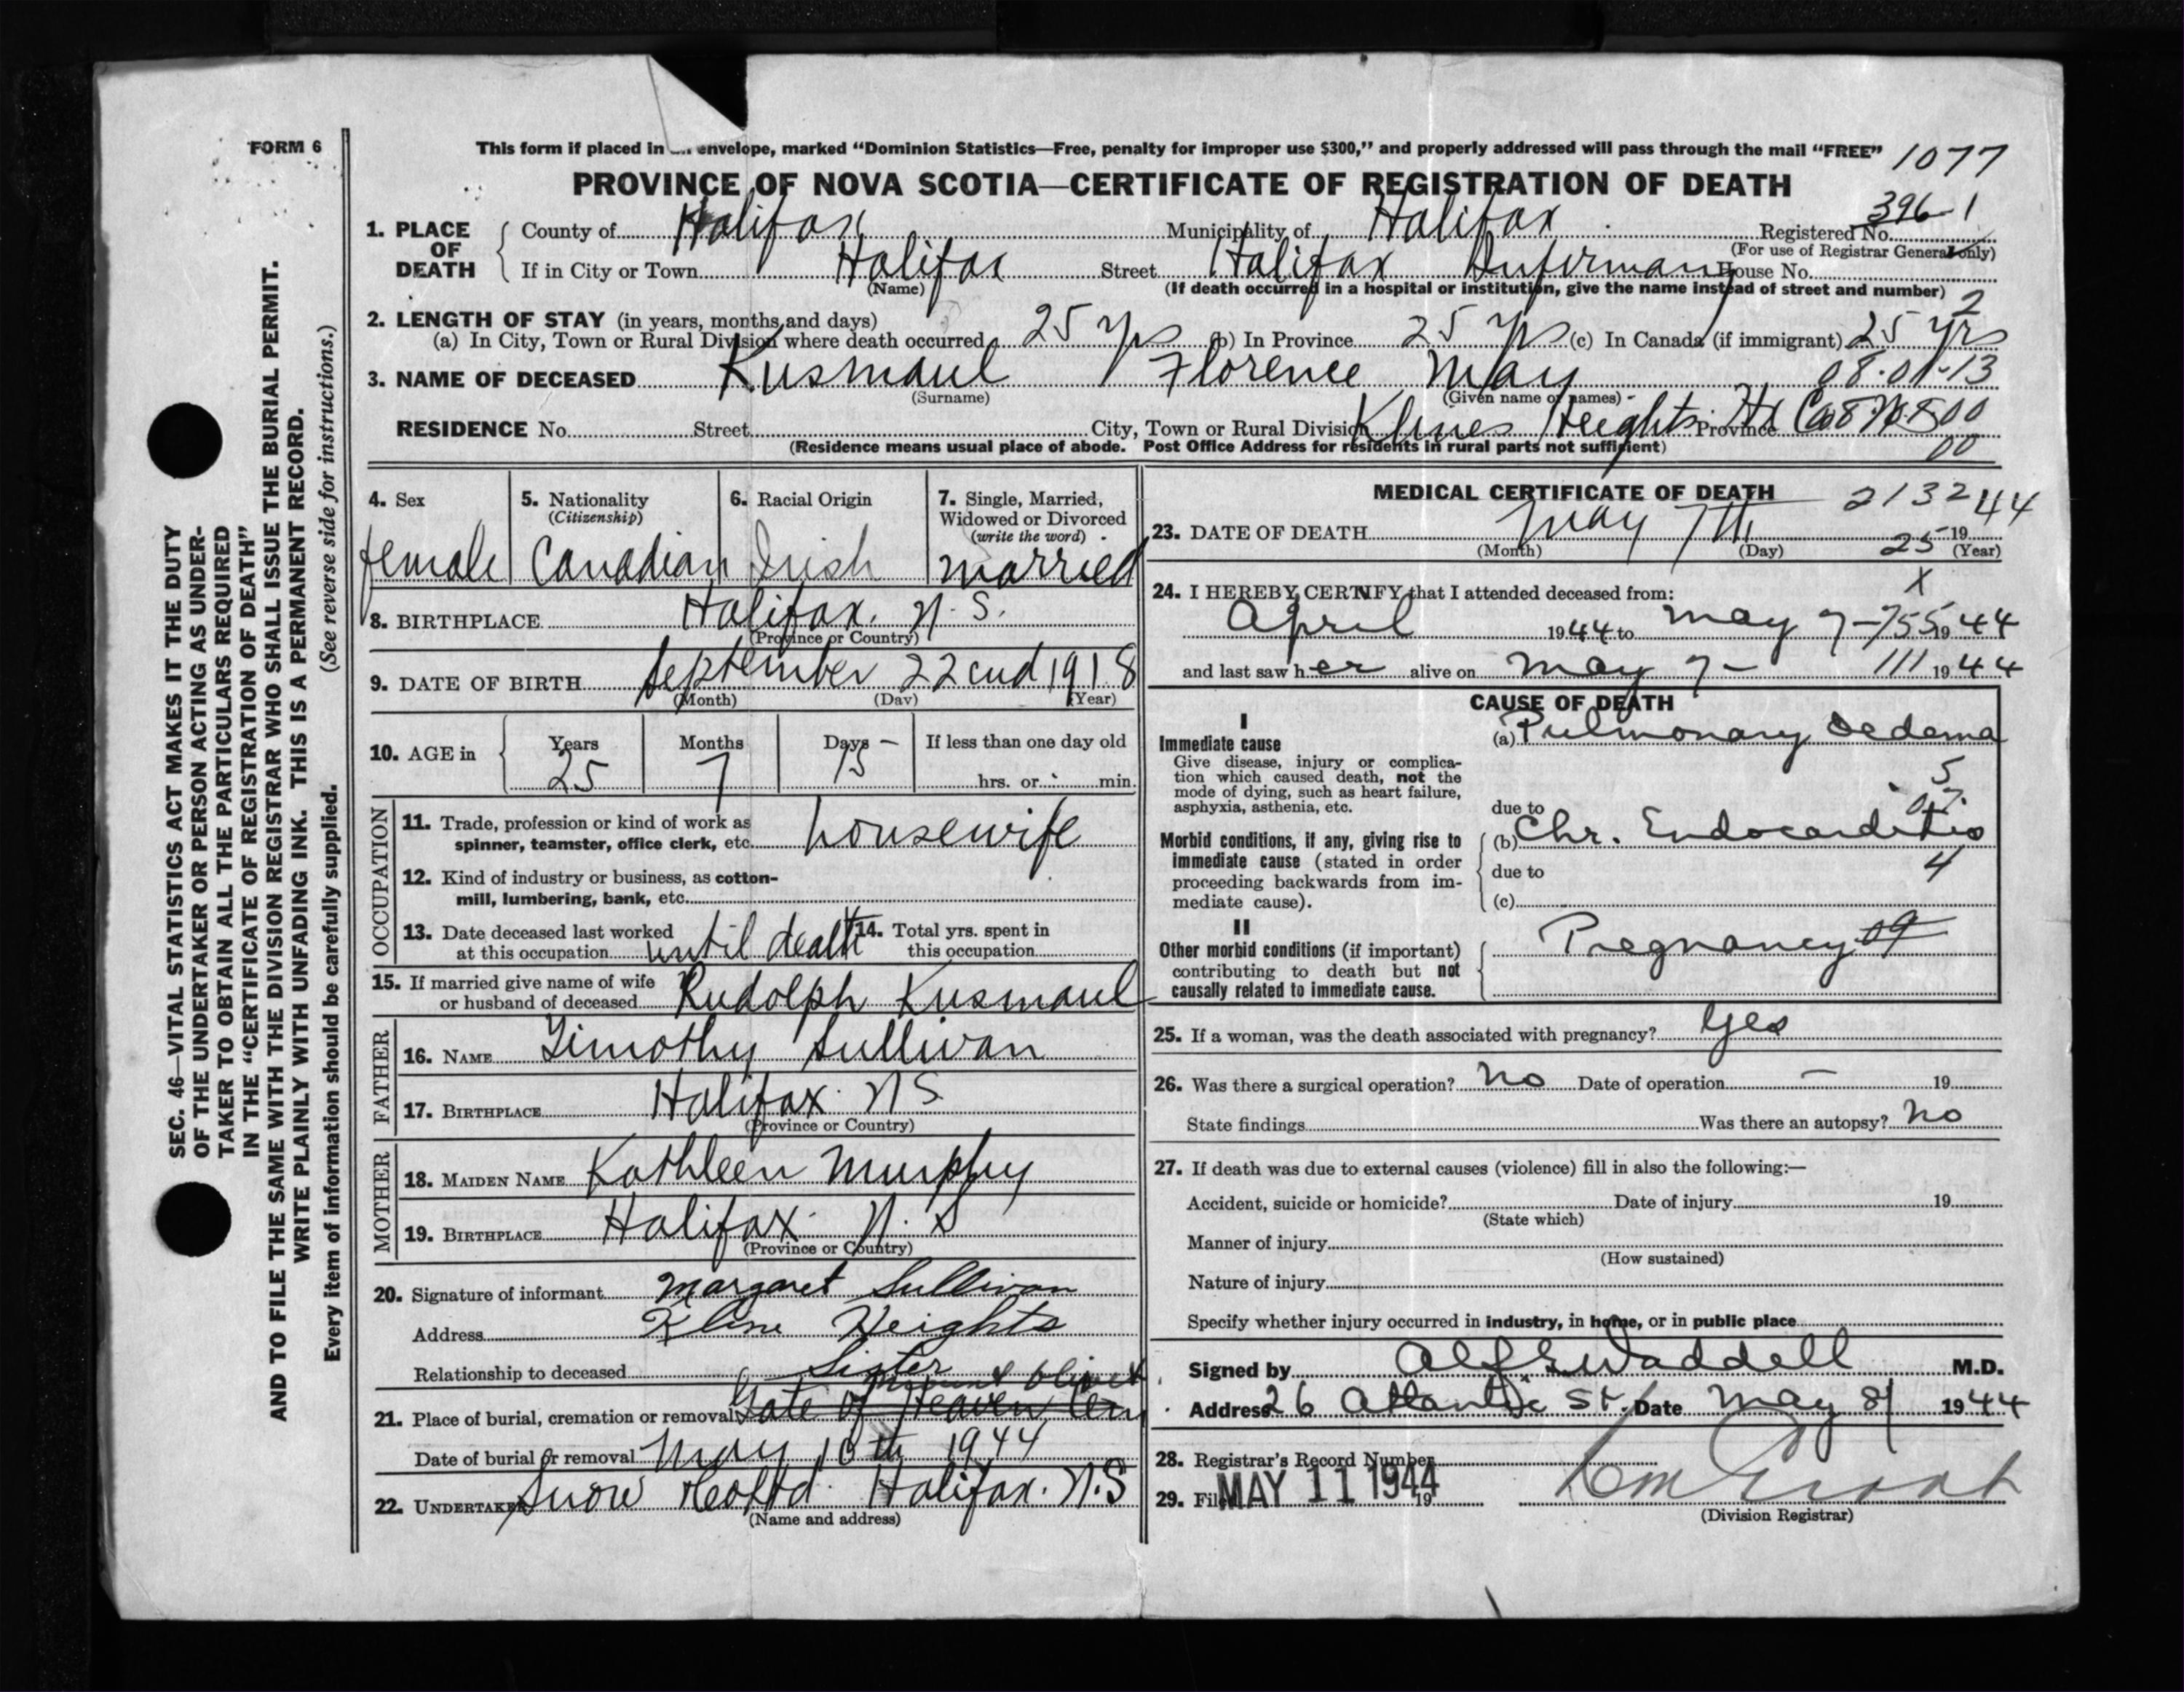 FORM 6
This form if placed in envelope, marked "Dominion Statistics—Free, penalty for improper use $300," and properly addressed will pass through the mail "FREE" 1077
PROVINCE OF NOVA SCOTIA—CERTIFICATE OF REGISTRATION OF DEATH
396-1
1. PLACE OF DEATH County of Halifax Municipality of Halifax Registered No.
(For use of Registrar General only)
If in City or Town Halifax Street Halifax Infirmary House No.
(Name) (If death occurred in a hospital or institution, give the name instead of street and number) 2
2. LENGTH OF STAY (in years, months, and days)
(a) In City, Town or Rural Division where death occurred 25 yrs (b) In Province 25 yrs (c) In Canada (if immigrant) 25 yrs
3. NAME OF DECEASED Kusmaul Florence May 08-01-13
(Surname) (Given name or names)
RESIDENCE No. Street City, Town or Rural Division Klines Heights Province Hx Co
(Residence means usual place of abode. Post Office Address for residents in rural parts not sufficient) 00
4. Sex female
5. Nationality (Citizenship) Canadian
6. Racial Origin Irish
7. Single, Married, Widowed or Divorced (write the word) married
8. BIRTHPLACE Halifax. N.S.
(Province or Country)
9. DATE OF BIRTH September 22cnd 1918
(Month) (Day) (Year)
10. AGE in Years 25 Months 7 Days 15 If less than one day old hrs. or min.
OCCUPATION
11. Trade, profession or kind of work as spinner, teamster, office clerk, etc. housewife
12. Kind of industry or business, as cotton-mill, lumbering, bank, etc.
13. Date deceased last worked at this occupation until death 14. Total yrs. spent in this occupation
15. If married give name of wife or husband of deceased Rudolph Kusmaul
FATHER
16. NAME Timothy Sullivan
17. BIRTHPLACE Halifax N S
(Province or Country)
MOTHER
18. MAIDEN NAME Kathleen Murphy
19. BIRTHPLACE Halifax N. S
(Province or Country)
20. Signature of informant Margaret Sullivan
Address Kline Heights
Relationship to deceased Sister
Mount Olivet
21. Place of burial, cremation or removal Gate of Heaven Cem
Date of burial or removal May 10th 1944
22. UNDERTAKER Snow & Co Ltd. Halifax. N.S
(Name and address)
MEDICAL CERTIFICATE OF DEATH 2132
23. DATE OF DEATH May 7th 19 44
(Month) (Day) 25 (Year)
24. I HEREBY CERTIFY that I attended deceased from: X
April 19 44 to May 7- 755 19 44
and last saw h er alive on May 7- 111 19 44
CAUSE OF DEATH
I
Immediate cause
Give disease, injury or complication which caused death, not the mode of dying, such as heart failure, asphyxia, asthenia, etc.
(a) Pulmonary Oedema
5
due to
Morbid conditions, if any, giving rise to immediate cause (stated in order proceeding backwards from immediate cause).
(b) Chr. Endocarditis
due to 4
(c)
II
Other morbid conditions (if important) contributing to death but not causally related to immediate cause.
Pregnancy 09
25. If a woman, was the death associated with pregnancy? Yes
26. Was there a surgical operation? No Date of operation — 19
State findings Was there an autopsy? No
27. If death was due to external causes (violence) fill in also the following:—
Accident, suicide or homicide? Date of injury 19
(State which)
Manner of injury
(How sustained)
Nature of injury
Specify whether injury occurred in industry, in home, or in public place
Signed by Alf E Waddell M.D.
Address 26 Atlantic St. Date May 8/ 1944
28. Registrar's Record Number
29. Filed MAY 11 1944 19
(Division Registrar)
SEC. 46—VITAL STATISTICS ACT MAKES IT THE DUTY
OF THE UNDERTAKER OR PERSON ACTING AS UNDER-
TAKER TO OBTAIN ALL THE PARTICULARS REQUIRED
IN THE "CERTIFICATE OF REGISTRATION OF DEATH"
AND TO FILE THE SAME WITH THE DIVISION REGISTRAR WHO SHALL ISSUE THE BURIAL PERMIT.
WRITE PLAINLY WITH UNFADING INK. THIS IS A PERMANENT RECORD.
Every item of information should be carefully supplied. (See reverse side for instructions.)